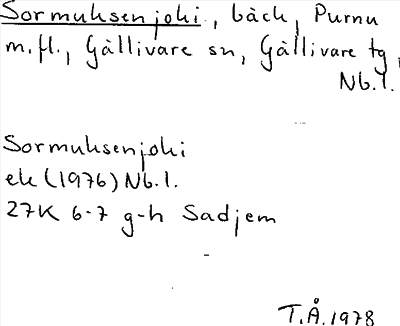 Sormuksenjoki, bäck, Purnu
m.fl., Gällivare sn, Gällivare tg,
Nb.l.
Sormuksenjoki
ek (1976) Nb.l.
27K 6-7 g-h Sadjem
T.Å. 1978